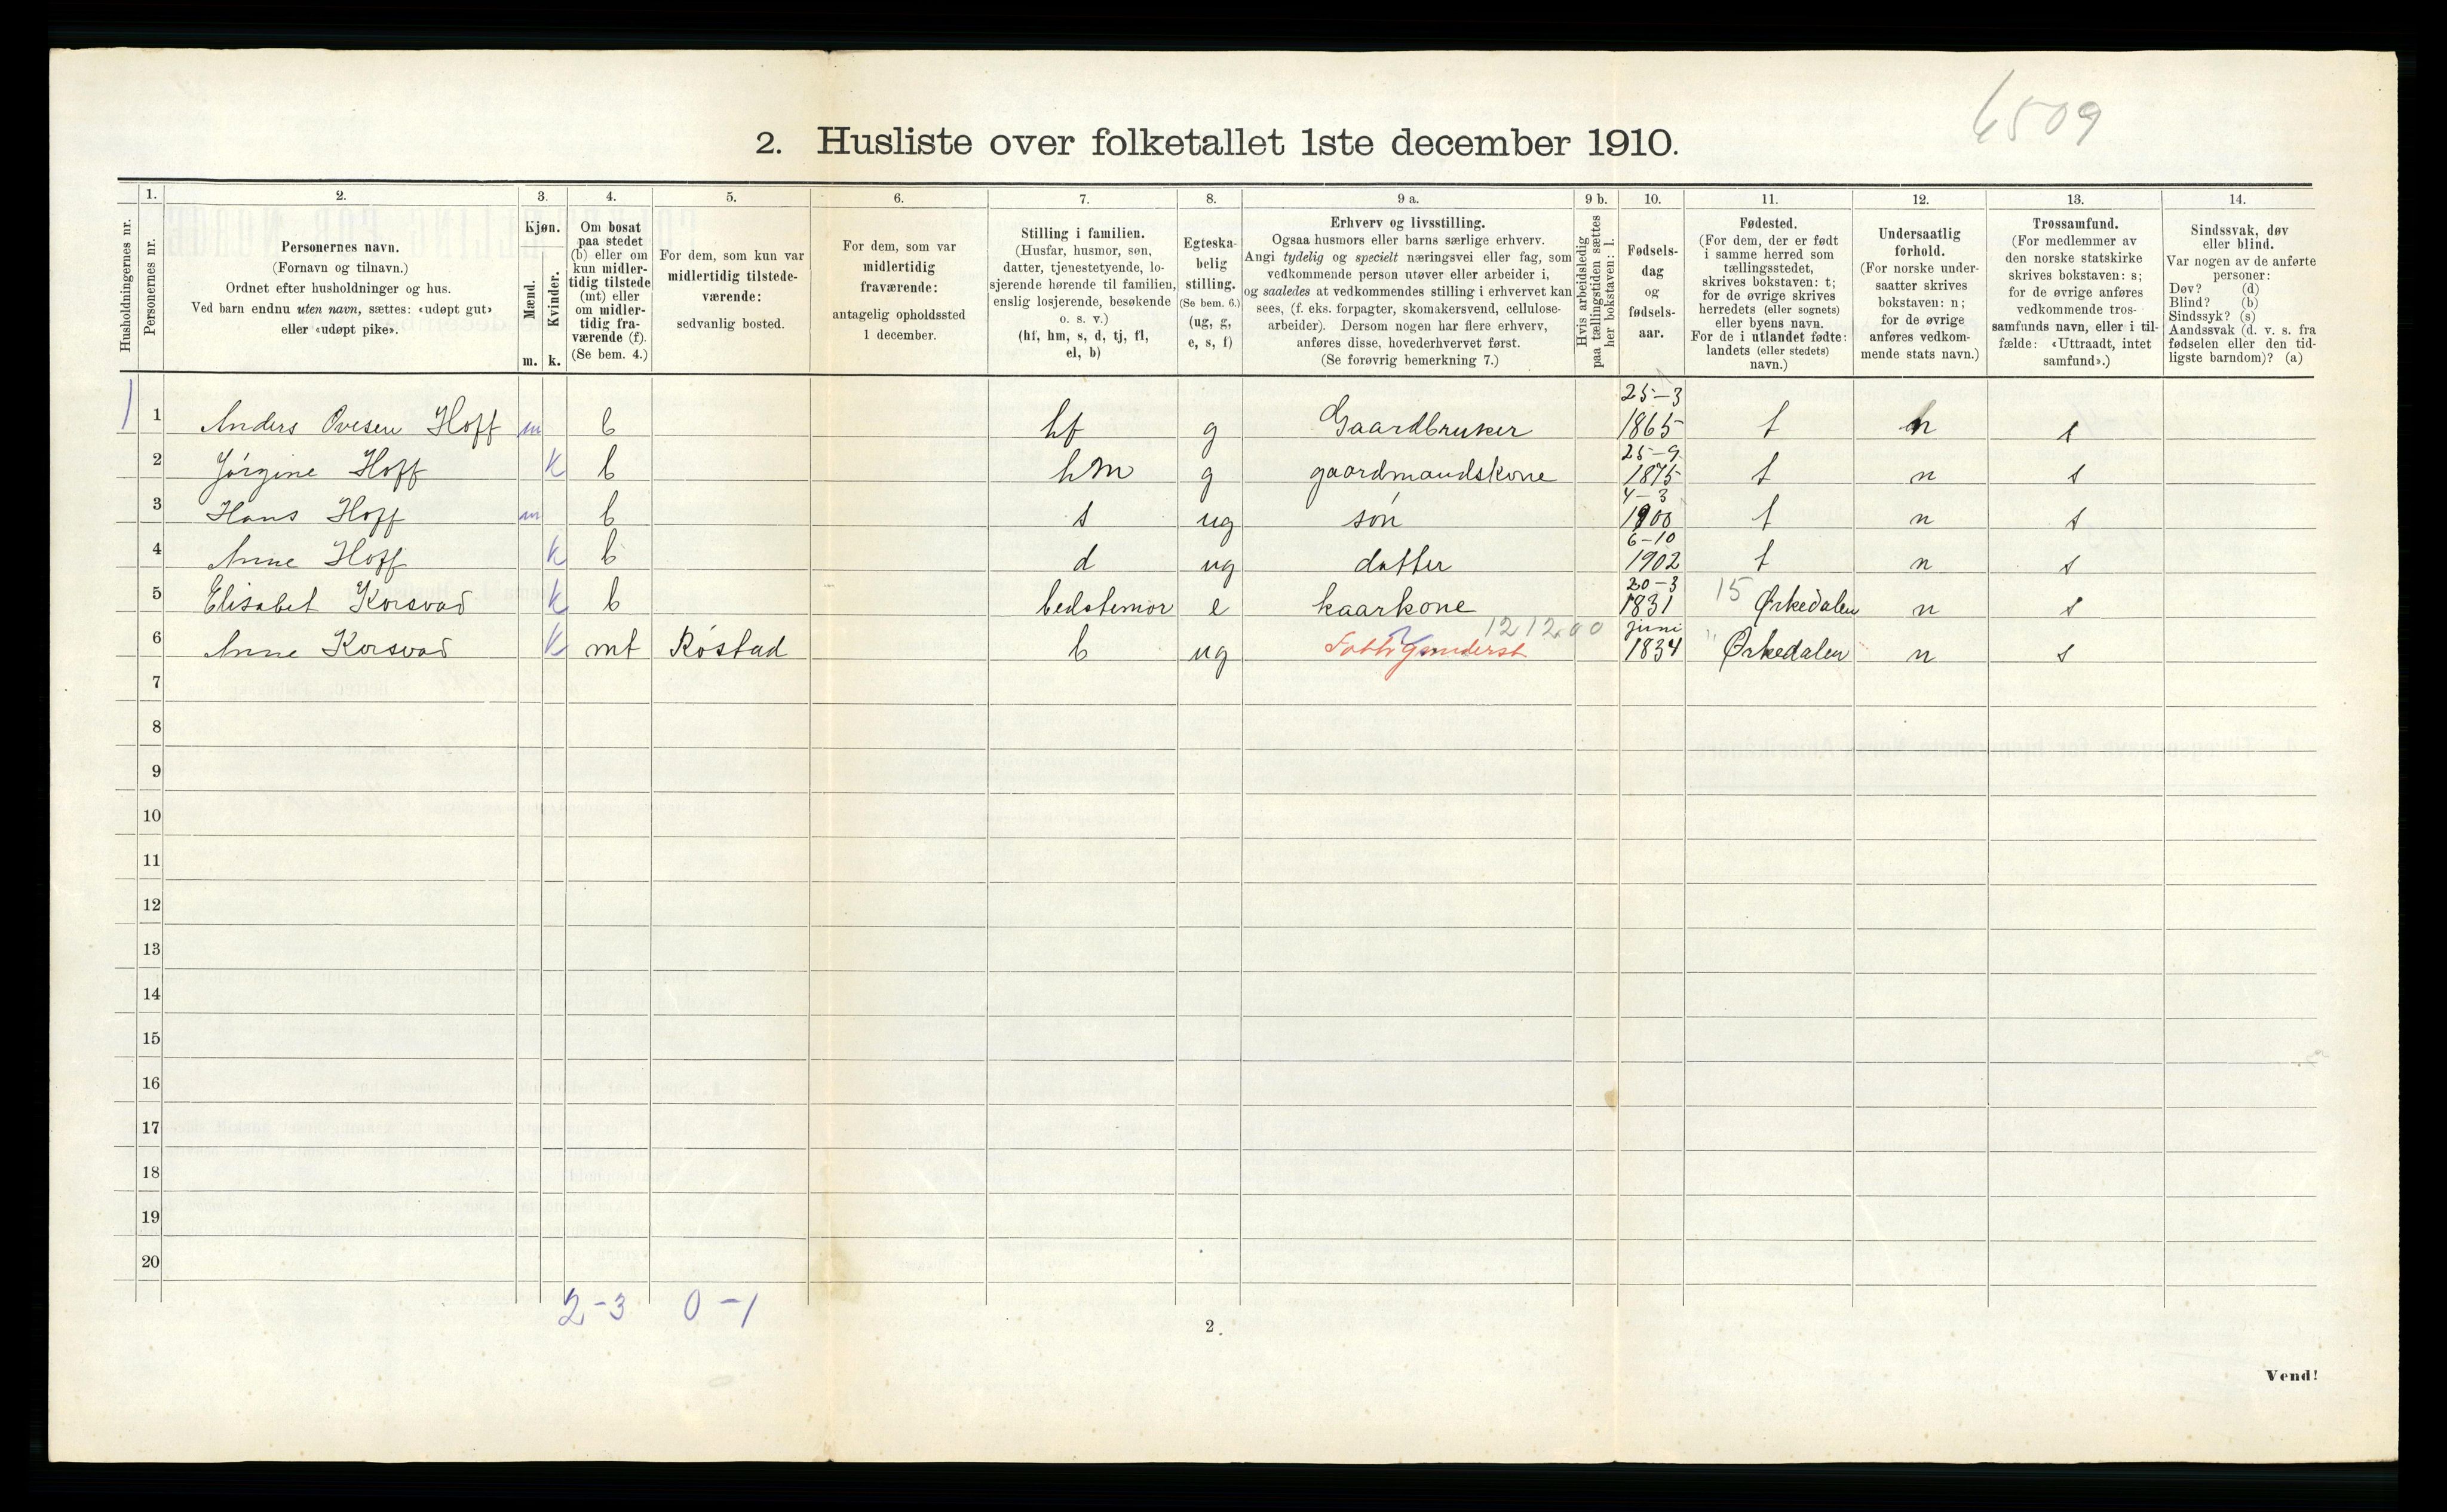 6509
2. Husliste over folketallet 1ste december 1910.
Husholdningernes nr.
1.
Personernes nr.
2.
Personernes navn.
(Fornavn og tilnavn.)
Ordnet efter husholdninger og hus.
Ved barn endnu uten navn, sættes: «udøpt gut»
eller «udøpt pike».
3.
Kjøn.
Mænd.
Kvinder.
m. k.
4.
Om bosat
paa stedet
(b) eller om
kun midler-
tidig tilstede
(mt) eller
om midler-
tidig fra-
værende (f).
(Se bem. 4.)
5.
For dem, som kun var
midlertidig tilstede-
værende:
sedvanlig bosted.
6.
For dem, som var
midlertidig
fraværende:
antagelig opholdssted
1 december.
7.
Stilling i familien.
(Husfar, husmor, søn,
datter, tjenestetyende, lo-
sjerende hørende til familien,
enslig losjerende, besøkende
o. s. v.)
(hf, hm, s, d, tj, fl,
el, b)
8.
Egteska-
belig
stilling.
(Se bem. 6.)
(ug, g,
e, s, f)
9 a.
Erhverv og livsstilling.
Ogsaa husmors eller barns særlige erhverv.
Angi tydelig og specielt næringsvei eller fag, som
vedkommende person utøver eller arbeider i,
og saaledes at vedkommendes stilling i erhvervet kan
sees, (f. eks. forpagter, skomakersvend, cellulose-
arbeider). Dersom nogen har flere erhverv,
anføres disse, hovederhvervet først.
(Se forøvrig bemerkning 7.)
9 b.
Hvis arbeidsledig
paa tællingstiden sættes
her bokstaven: l.
10.
Fødsels-
dag
og
fødsels-
aar.
11.
Fødested.
(For dem, der er født
i samme herred som
tællingsstedet,
skrives bokstaven: t;
for de øvrige skrives
herredets (eller sognets)
eller byens navn.
For de i utlandet fødte:
landets (eller stedets)
navn.)
12.
Undersaatlig
forhold.
(For norske under-
saatter skrives
bokstaven: n;
for de øvrige
anføres vedkom-
mende stats navn.)
13.
Trossamfund.
(For medlemmer av
den norske statskirke
skrives bokstaven: s;
for de øvrige anføres
vedkommende tros-
samfunds navn, eller i til-
fælde: «Uttraadt, intet
samfund».)
14.
Sindssvak, døv
eller blind.
Var nogen av de anførte
personer:
Døv? (d)
Blind? (b)
Sindssyk? (s)
Aandssvak (d. v. s. fra
fødselen eller den tid-
ligste barndom)? (a)
1 1 Anders Ovesen Hoff m b hf g Gaardbruker 25-3 1865 t n s
2 Jørgine Hoff k b hm g gaardmandskone 25-9 1875 t n s
3 Hans Hoff m b s ug søn 4-3 1900 t n s
4 Anne Hoff k b d ug datter 6-10 1902 t n s
5 Elisabet Korsvad k b bedstemor e kaarkone 20-3 1831 15 Ørkedalen n s
6 Anne Korsvad k mt Røstad b ug Fattigunderst 1212.00 juni 1834 " Ørkedalen n s
7
8
9
10
11
12
13
14
15
16
17
18
19
20
2-3 0-1
2
Vend!